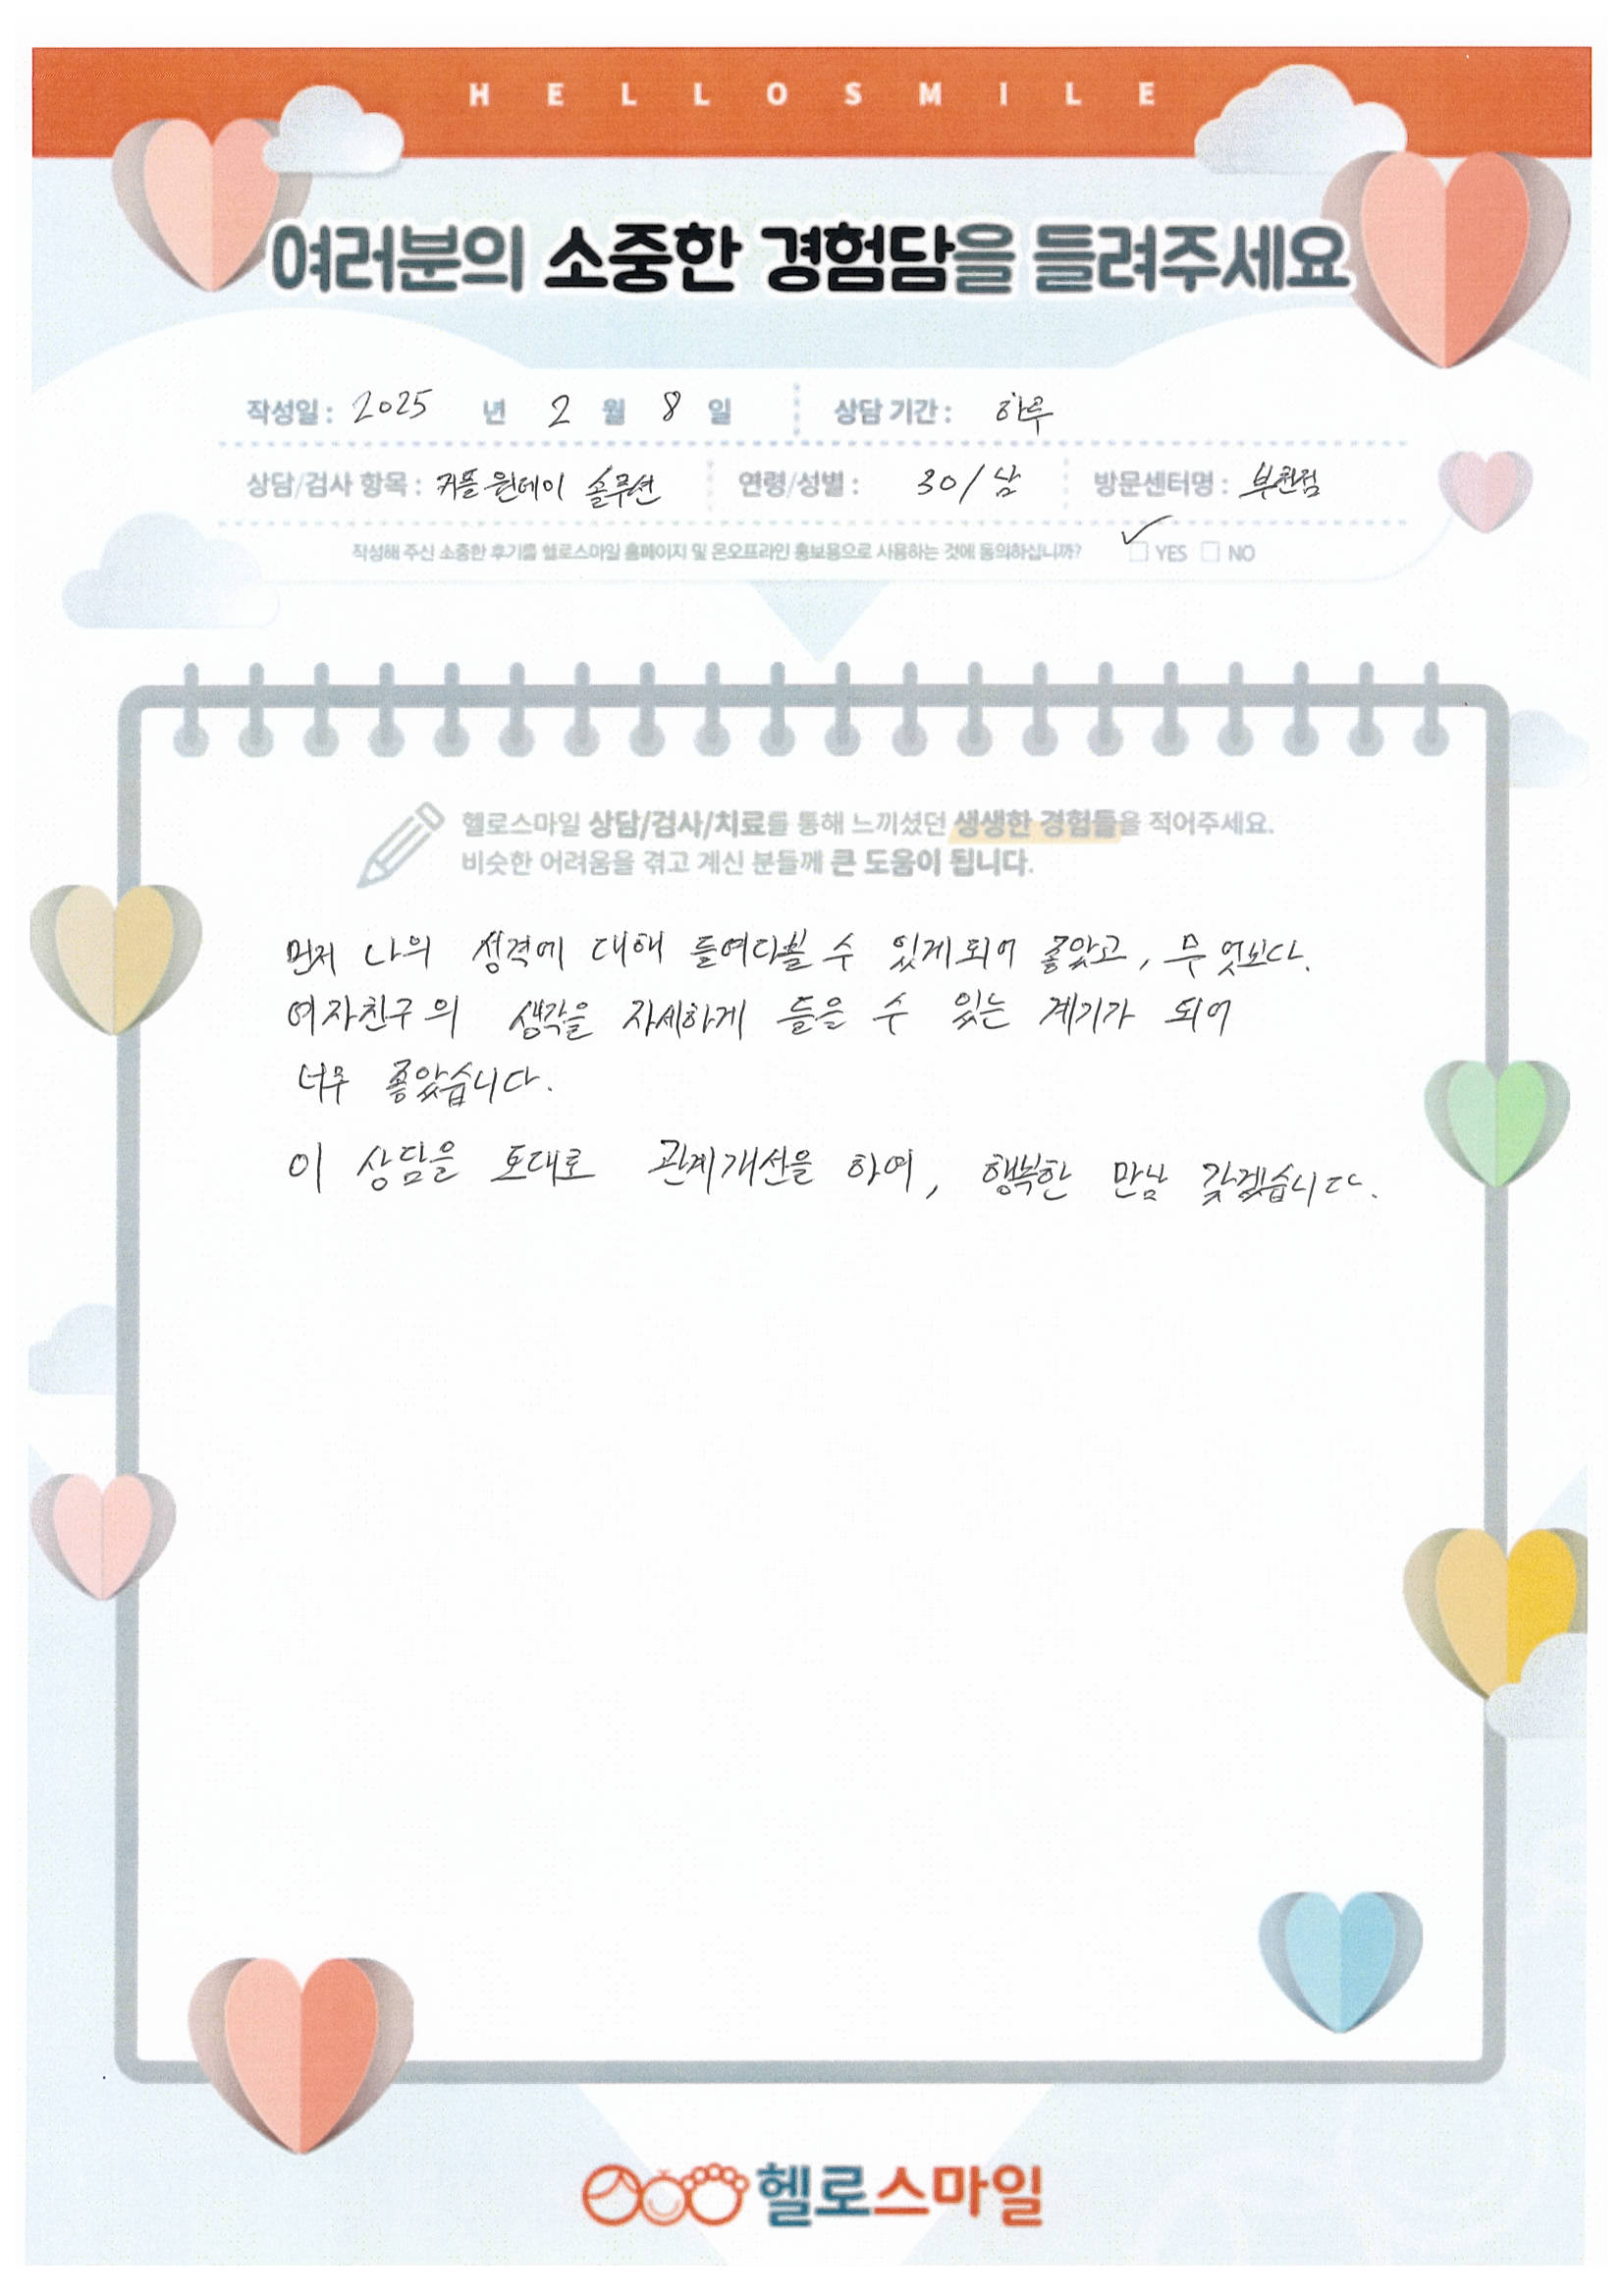 HELLOSMILE
여러분의 소중한 경험담을 들려주세요
작성일 : 2025 년 2 월 8 일 상담 기간 : 하루
상담/검사 항목 : 커플 원데이 솔루션 연령/성별 : 30 / 남 방문센터명 : 부천점
작성해 주신 소중한 후기를 헬로스마일 홈페이지 및 온오프라인 홍보용으로 사용하는 것에 동의하십니까? ✓☐ YES ☐ NO
헬로스마일 상담/검사/치료를 통해 느끼셨던 생생한 경험들을 적어주세요.
비슷한 어려움을 겪고 계신 분들께 큰 도움이 됩니다.
먼저 나의 성격에 대해 들여다볼 수 있게되어 좋았고, 무엇보다.
여자친구의 생각을 자세하게 들을 수 있는 계기가 되어
너무 좋았습니다.
이 상담을 토대로 관계개선을 하여, 행복한 만남 갖겠습니다.
헬로스마일